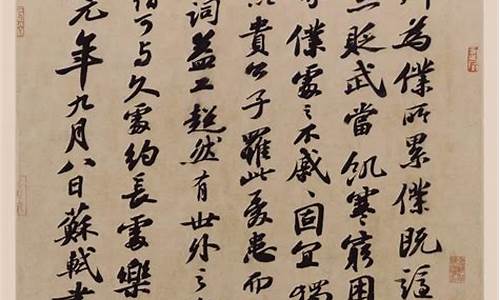 為僕所累僕既謫
亦貶武當飢寒窮困
僕處之不戚〻固宜獨
以貴公子罹此憂患而
詞益工超然有世外之
謂可與久處約長處樂
元年九月八日蘇軾書